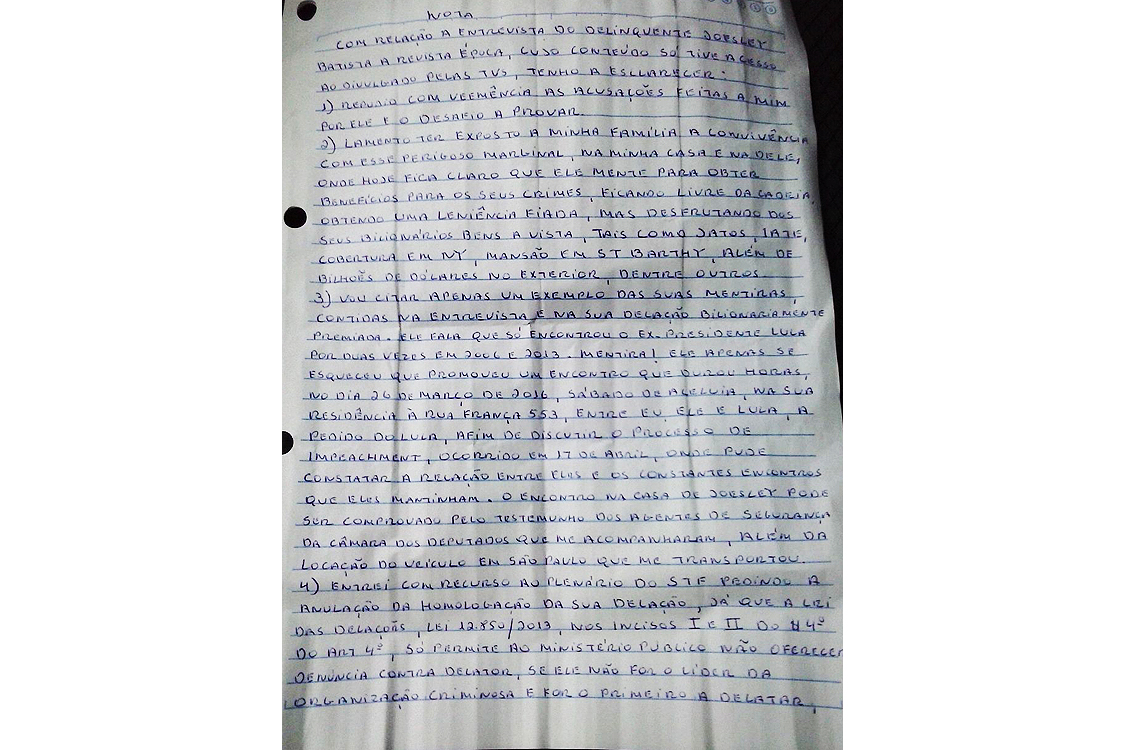 NOTA
COM RELAÇÃO A ENTREVISTA DO DELINQUENTE JOESLEY
BATISTA A REVISTA ÉPOCA, CUJO CONTEÚDO SÓ TIVE ACESSO
AO DIVULGADO PELAS TVS, TENHO A ESCLARECER:
1) REPUDIO COM VEEMÊNCIA AS ACUSAÇÕES FEITAS A MIM
POR ELE E O DESAFIO A PROVAR.
2) LAMENTO TER EXPOSTO A MINHA FAMÍLIA A CONVIVÊNCIA
COM ESSE PERIGOSO MARGINAL, NA MINHA CASA E NA DELE,
ONDE HOJE FICA CLARO QUE ELE MENTE PARA OBTER
BENEFÍCIOS PARA OS SEUS CRIMES, FICANDO LIVRE DA CADEIA,
OBTENDO UMA LENIÊNCIA FIADA, MAS DESFRUTANDO DOS
SEUS BILIONÁRIOS BENS A VISTA, TAIS COMO JATOS, IATE,
COBERTURA EM NY, MANSÃO EM ST BARTHY, ALÉM DE
BILHÕES DE DÓLARES NO EXTERIOR, DENTRE OUTROS
3) VOU CITAR APENAS UM EXEMPLO DAS SUAS MENTIRAS,
CONTIDAS NA ENTREVISTA E NA SUA DELAÇÃO BILIONARIAMENTE
PREMIADA. ELE FALA QUE SÓ ENCONTROU O EX. PRESIDENTE LULA
POR DUAS VEZES EM 2006 E 2013. MENTIRA! ELE APENAS SE
ESQUECEU QUE PROMOVEU UM ENCONTRO QUE DUROU HORAS,
NO DIA 26 DE MARÇO DE 2016, SÁBADO DE ALELUIA, NA SUA
RESIDÊNCIA À RUA FRANÇA 553, ENTRE EU ELE E LULA, A
PEDIDO DO LULA, AFIM DE DISCUTIR O PROCESSO DE
IMPEACHMENT, OCORRIDO EM 17 DE ABRIL, ONDE PUDE
CONSTATAR A RELAÇÃO ENTRE ELES E OS CONSTANTES ENCONTROS
QUE ELES MANTINHAM. O ENCONTRO NA CASA DE JOESLEY PODE
SER COMPROVADO PELO TESTEMUNHO DOS AGENTES DE SEGURANÇA
DA CÂMARA DOS DEPUTADOS QUE ME ACOMPANHARAM, ALÉM DA
LOCAÇÃO DO VEÍCULO EM SÃO PAULO QUE ME TRANSPORTOU.
4) ENTREI COM RECURSO AO PLENÁRIO DO STF PEDINDO A
ANULAÇÃO DA HOMOLOGAÇÃO DA SUA DELAÇÃO, JÁ QUE A LEI
DAS DELAÇÕES, LEI 12.850/2013, NOS INCISOS I E II DO § 4º
DO ART 4º, SÓ PERMITE AO MINISTÉRIO PUBLICO NÃO OFERECER
DENÚNCIA CONTRA DELATOR, SE ELE NÃO FOR O LÍDER DA
ORGANIZAÇÃO CRIMINOSA E FOR O PRIMEIRO A DELATAR,